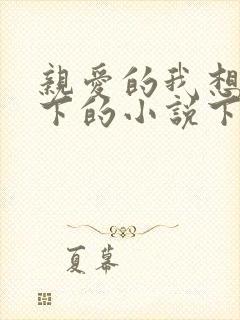 親愛的我想
下的小說下
夏幕